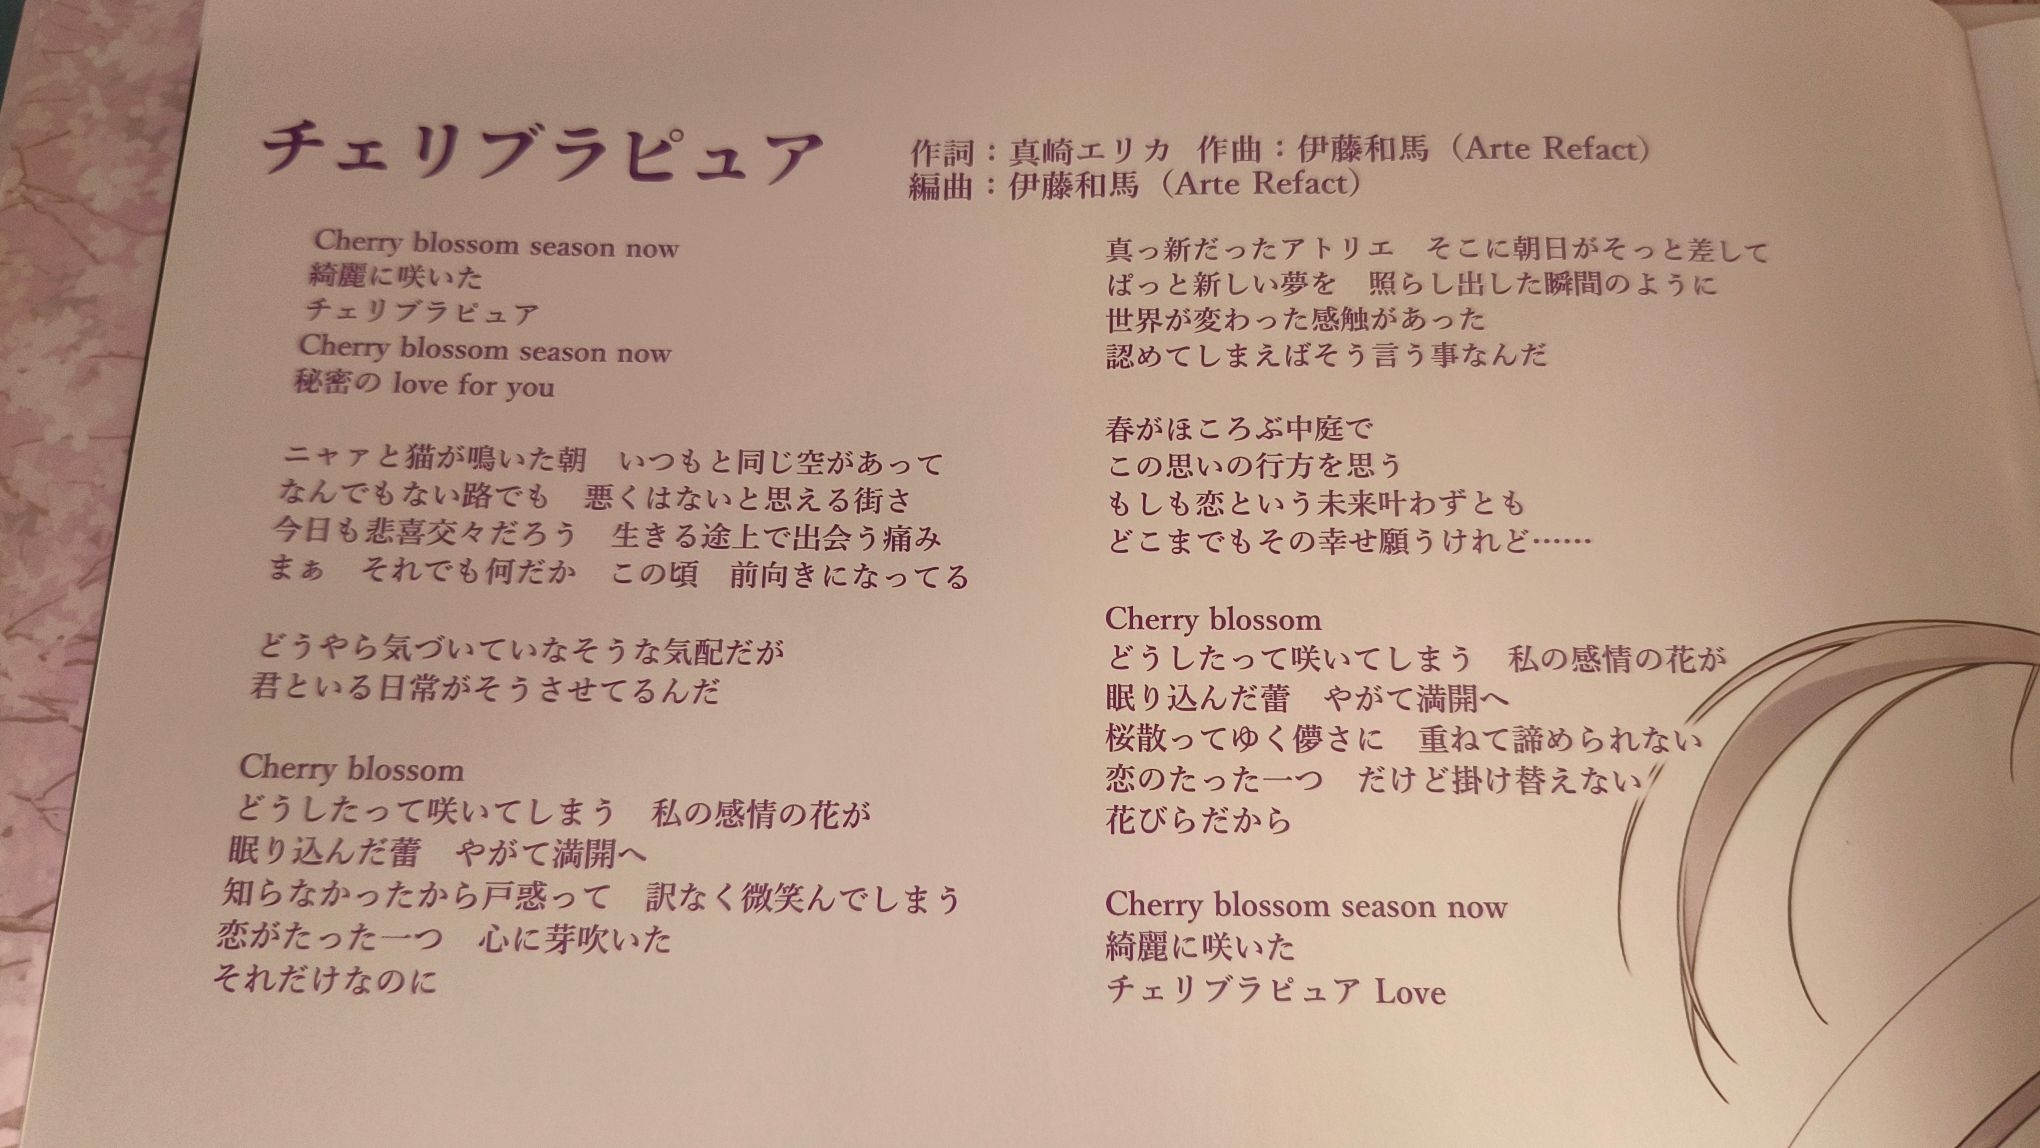 チェリブラピュア
作詞：真崎エリカ 作曲：伊藤和馬（Arte Refact）
編曲：伊藤和馬（Arte Refact）
Cherry blossom season now
綺麗に咲いた
チェリブラピュア
Cherry blossom season now
秘密の love for you
ニャァと猫が鳴いた朝　いつもと同じ空があって
なんでもない路でも　悪くはないと思える街さ
今日も悲喜交々だろう　生きる途上で出会う痛み
まぁ　それでも何だか　この頃　前向きになってる
どうやら気づいていなそうな気配だが
君といる日常がそうさせてるんだ
Cherry blossom
どうしたって咲いてしまう　私の感情の花が
眠り込んだ蕾　やがて満開へ
知らなかったから戸惑って　訳なく微笑んでしまう
恋がたった一つ　心に芽吹いた
それだけなのに
真っ新だったアトリエ　そこに朝日がそっと差して
ぱっと新しい夢を　照らし出した瞬間のように
世界が変わった感触があった
認めてしまえばそう言う事なんだ
春がほころぶ中庭で
この思いの行方を思う
もしも恋という未来叶わずとも
どこまでもその幸せ願うけれど……
Cherry blossom
どうしたって咲いてしまう　私の感情の花が
眠り込んだ蕾　やがて満開へ
桜散ってゆく儚さに　重ねて諦められない
恋のたった一つ　だけど掛け替えない
花びらだから
Cherry blossom season now
綺麗に咲いた
チェリブラピュア Love